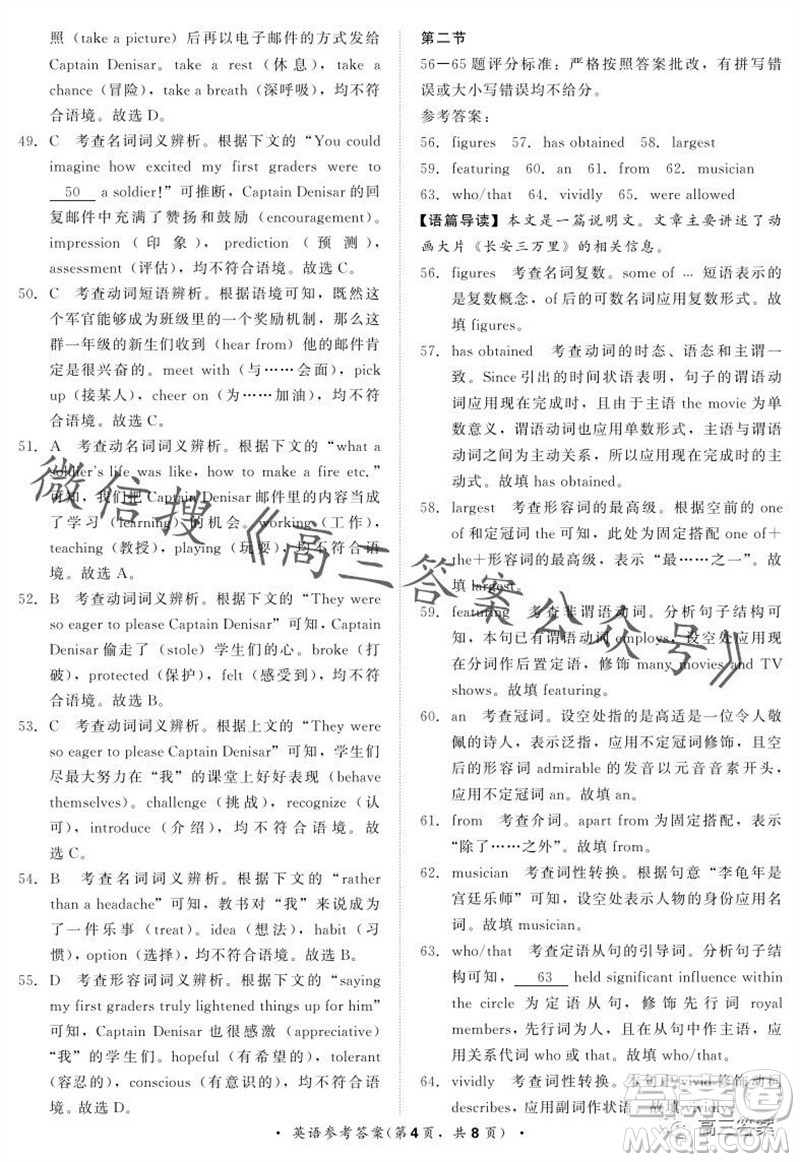 照（take a picture）后再以电子邮件的方式发给
Captain Denisar。take a rest（休息），take a
chance（冒险），take a breath（深呼吸），均不符
合语境。故选 D。
49. C　考查名词词义辨析。根据下文的“You could
imagine how excited my first graders were to
50 a soldier!”可推断，Captain Denisar 的回
复邮件中充满了赞扬和鼓励（encouragement）。
impression（印象），prediction（预测），
assessment（评估），均不符合语境。故选 C。
50. C　考查动词短语辨析。根据语境可知，既然这
个军官能够成为班级里的一个奖励机制，那么这
群一年级的新生们收到（hear from）他的邮件肯
定是很兴奋的。meet with（与……会面），pick
up（接某人），head for（为……加油），均不符合语
境。故选 C。
51. A　考查动名词词义辨析。根据下文的“what a
soldier's life was like, how to make a fire etc.”
可知，我们把 Captain Denisar 邮件里的内容当成
了学习（learning）的机会。working（工作），
teaching（教授），playing（玩耍），均不符合语
境。故选 A。
52. B　考查动词词义辨析。根据下文的“They were
so eager to please Captain Denisar”可知，Captain
Denisar 偷走了（stole）学生们的心。broke（打
破），protected（保护），felt（感受到），均不符合语
境。故选 B。
53. C　考查动词词义辨析。根据上文的“They were
so eager to please Captain Denisar”可知，学生们
尽最大努力在“我”的课堂上好好表现（behave
themselves）。challenge（挑战），recognize（认
可），introduce（介绍），均不符合语境。故
选 C。
54. B　考查名词词义辨析。根据下文的“rather
than a headache”可知，教书对“我”来说成
了一件乐事（treat）。idea（想法），habit（习
惯），option（选择），均不符合语境。故选 B。
55. D　考查形容词词义辨析。根据下文的“saying
my first graders truly lightened things up for him”
可知，Captain Denisar 也很感激（appreciative）
“我”的学生们。hopeful（有希望的），tolerant
（容忍的），conscious（有意识的），均不符合语
境。故选 D。
第二节
56—65 题评分标准：严格按照答案批改，有拼写错
误或大小写错误均不给分。
参考答案：
56. figures　57. has obtained　58. largest
59. featuring　60. an　61. from　62. musician
63. who/that　64. vividly　65. were allowed
【语篇导读】本文是一篇说明文。文章主要讲述了动
画大片《长安三万里》的相关信息。
56. figures　考查名词复数。some of … 短语表示的
是复数概念，of 后的可数名词应用复数形式。故
填 figures。
57. has obtained　考查动词的时态、语态和主谓一
致。Since 引出的时间状语表明，句子的谓语动
词应用现在完成时，且由于主语 the movie 为单
数意义，谓语动词也应用单数形式；主语与谓语
动词之间为主动关系，所以应用现在完成时的主
动式。故填 has obtained。
58. largest　考查形容词的最高级。根据空前的 one
of 和定冠词 the 可知，此处为固定搭配 one of＋
the＋形容词的最高级，表示“最……之一”。故
填 largest。
59. featuring　考查非谓语动词。分析句子结构可
知，本句已有谓语动词 employs，设空处应用现
在分词作后置定语，修饰 many movies and TV
shows。故填 featuring。
60. an　考查冠词。设空处指的是高适是一位令人敬
佩的诗人，表示泛指，应用不定冠词修饰，且空
后的形容词 admirable 的发音以元音音素开头，
应用不定冠词 an。故填 an。
61. from　考查介词。apart from 为固定搭配，表示
“除了……之外”。故填 from。
62. musician　考查词性转换。根据句意“李龟年是
宫廷乐师”可知，设空处应用表示人物的身份应用名
词。故填 musician。
63. who/that　考查定语从句的引导词。分析句子结
构可知，63 held significant influence within
the circle 为定语从句，修饰先行词 royal
members，先行词为人，且在从句中作主语，应
用关系代词 who 或者 that。故填 who/that。
64. vividly　考查词性转换。本句中 vivid 修饰动词
describes，应用副词作状语。故填 vividly。
• 英语参考答案（第 4 页，共 8 页） •
微信搜《高三答案公众号》
高三答案